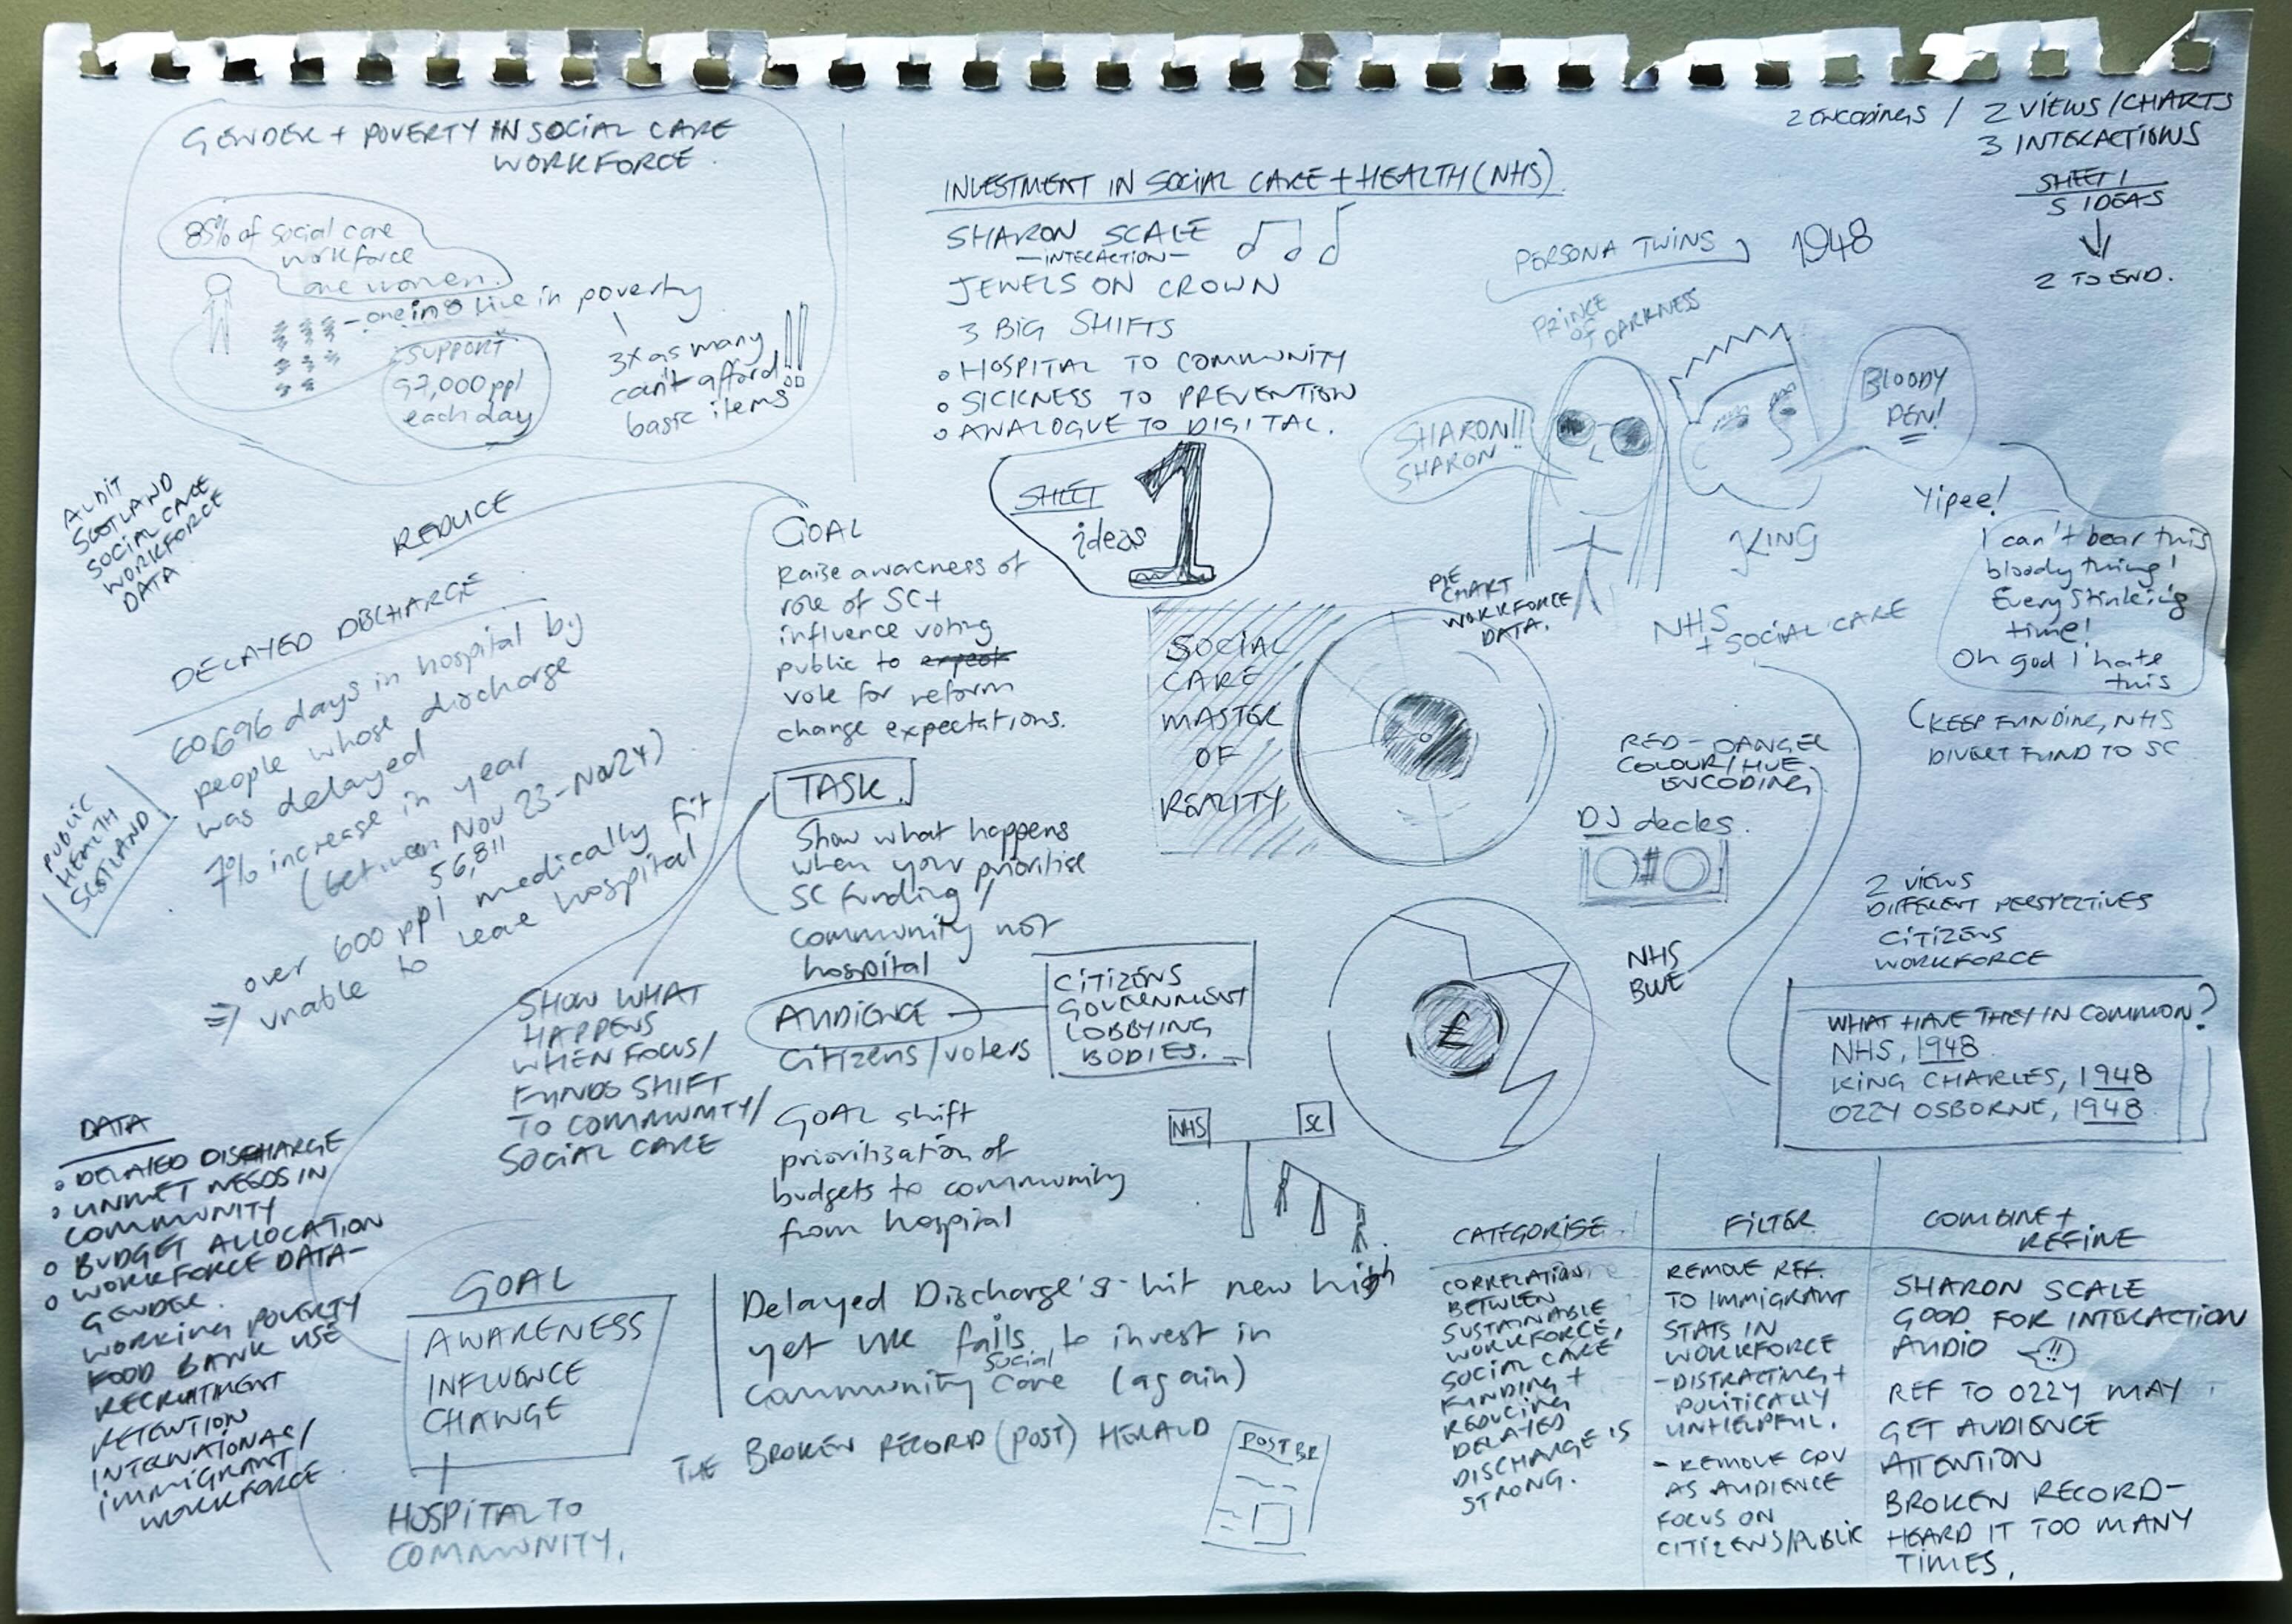 GENDER + POVERTY IN SOCIAL CARE
WORKFORCE.
85% of social care
workforce
are women.
- one in 8 live in poverty
SUPPORT
97,000 ppl
each day
3x as many
can't afford
basic items
!!
2 ENCODINGS / 2 VIEWS / CHARTS
3 INTERACTIONS
SHEET 1
5 IDEAS
2 TO END.
INVESTMENT IN SOCIAL CARE + HEALTH (NHS)
SHARON SCALE
- INTERACTION -
JEWELS ON CROWN
3 BIG SHIFTS
HOSPITAL TO COMMUNITY
SICKNESS TO PREVENTION
ANALOGUE TO DIGITAL.
SHEET 1
ideas
PERSONA TWINS
1948
PRINCE
OF DARKNESS
SHARON!!
SHARON
BLOODY
PEN!
KING
Yipee!
I can't bear this
bloody thing!
Every stinking
time!
Oh god I hate
this
NHS
+ SOCIAL CARE
(KEEP FUNDING, NHS
DIVERT FUND TO SC
AUDIT
SCOTLAND
SOCIAL CARE
WORKFORCE
DATA
REDUCE
DELAYED DISCHARGE
60,696 days in hospital by
people whose discharge
was delayed
7% increase in year
(between Nov 23-Nov 24)
56,811
over 600 ppl medically fit
⇒ unable to leave hospital
PUBLIC
HEALTH
SCOTLAND
GOAL
Raise awareness of
role of SC +
influence voting
public to expect
vote for reform
change expectations.
TASK
Show what happens
when your prioritise
SC funding /
community not
hospital
SHOW WHAT
HAPPENS
WHEN FOCUS /
FUNDS SHIFT
TO COMMUNITY /
SOCIAL CARE
AUDIENCE
Citizens / voters
CITIZENS
GOVERNMENT
LOBBYING
BODIES.
GOAL shift
prioritisation of
budgets to community
from hospital
PIE
CHART
WORKFORCE
DATA.
SOCIAL
CARE
MASTER
OF
REALITY
RED - DANGER
COLOUR / HUE
ENCODING
DJ decks.
£
NHS
BLUE
NHS
SC
2 VIEWS
DIFFERENT PERSPECTIVES
CITIZENS
WORKFORCE
WHAT HAVE THEY IN COMMON?
NHS, 1948
KING CHARLES, 1948
OZZY OSBORNE, 1948
DATA
DELAYED DISCHARGE
UNMET NEEDS IN
COMMUNITY
BUDGET ALLOCATION
WORKFORCE DATA -
GENDER
WORKING POVERTY
FOOD BANK USE
RECRUITMENT
RETENTION
INTERNATIONAL /
IMMIGRANT
WORKFORCE
GOAL
AWARENESS
INFLUENCE
CHANGE
HOSPITAL TO
COMMUNITY.
Delayed Discharge's hit new high
yet UK fails to invest in
community social care (again)
THE BROKEN RECORD (POST) HERALD
POST BR
CATEGORISE
CORRELATION
BETWEEN
SUSTAINABLE
WORKFORCE,
SOCIAL CARE
FUNDING +
REDUCING
DELAYED
DISCHARGE IS
STRONG.
FILTER
REMOVE REF.
TO IMMIGRANT
STATS IN
WORKFORCE
- DISTRACTING +
POLITICALLY
UNHELPFUL.
- REMOVE GOV
AS AUDIENCE
FOCUS ON
CITIZENS/PUBLIC
COMBINE +
REFINE
SHARON SCALE
GOOD FOR INTERACTION
AUDIO !!
REF TO OZZY MAY
GET AUDIENCE
ATTENTION
BROKEN RECORD-
HEARD IT TOO MANY
TIMES.